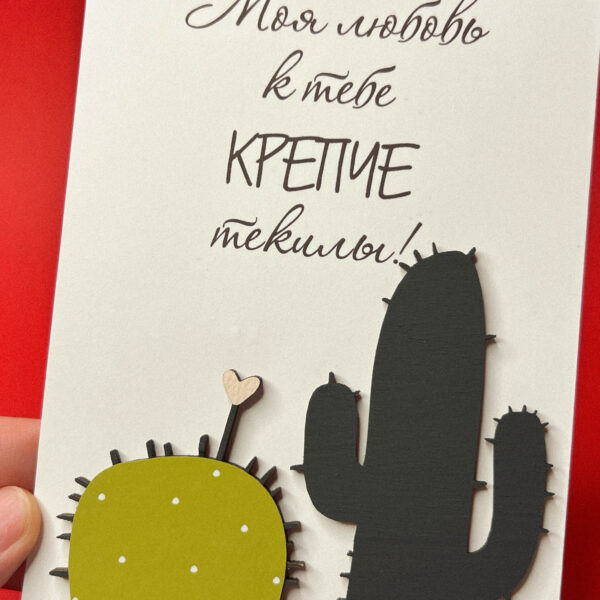 Моя любовь
к тебе
КРЕПЧЕ
текилы!